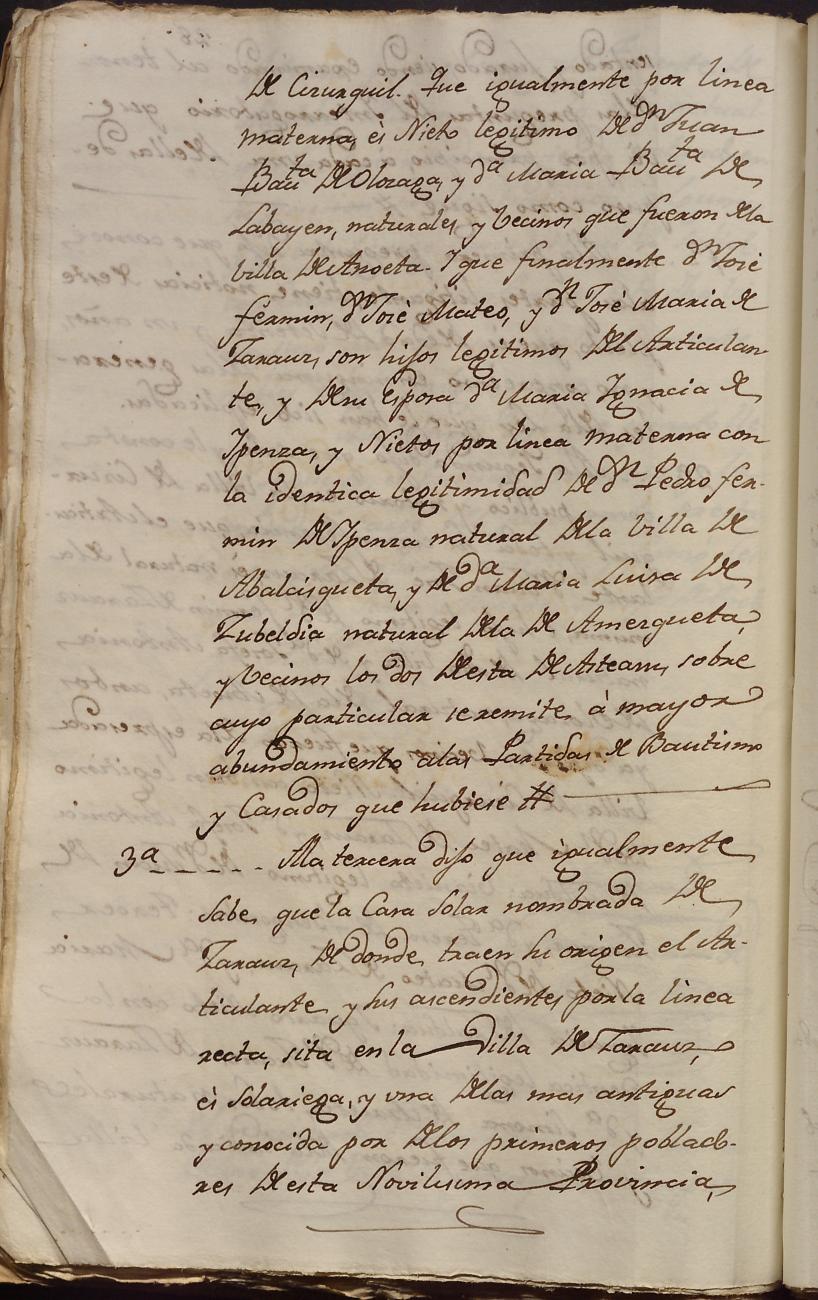 de Cizurquil. Que igualmente por linea
materna, ès Nieto legitimo de dn Juan
Bauta de Olozaga, y da Maria Bauta de
Labayen, naturales, y Vecinos que fueron dela
villa de Anoeta. Y que finalmente dn José
fermin, dn Josè Mateo, y dn Josè Maria de
Zarauz, son hijos legitimos del Articulan-
te, y desu Esposa da Maria Ignacia de
Ypenza, y Nietos por linea materna con
la identica legitimidad de dn Pedro fer-
min de Ypenza natural dela Villa de
Abalcisqueta, y de da Maria Luisa de
Zubeldia natural dela de Amezqueta,
y Vecinos los dos desta de Asteasu, sobre
cuyo particular seremite à mayor
abundamiento alas Partidas de Bautismo
y Casados que hubiese #
3a Ala tercera dijo que igualmente
sabe, que la Casa Solar nombrada de
Zarauz, de donde, traen su origen el Ar-
ticulante y sus ascendientes por la linea
recta, sita en la Villa de Zarauz,
ès solariega, y una delas mas antiguas
y conocida por delos primeros poblado-
res desta Novilisima Provincia,